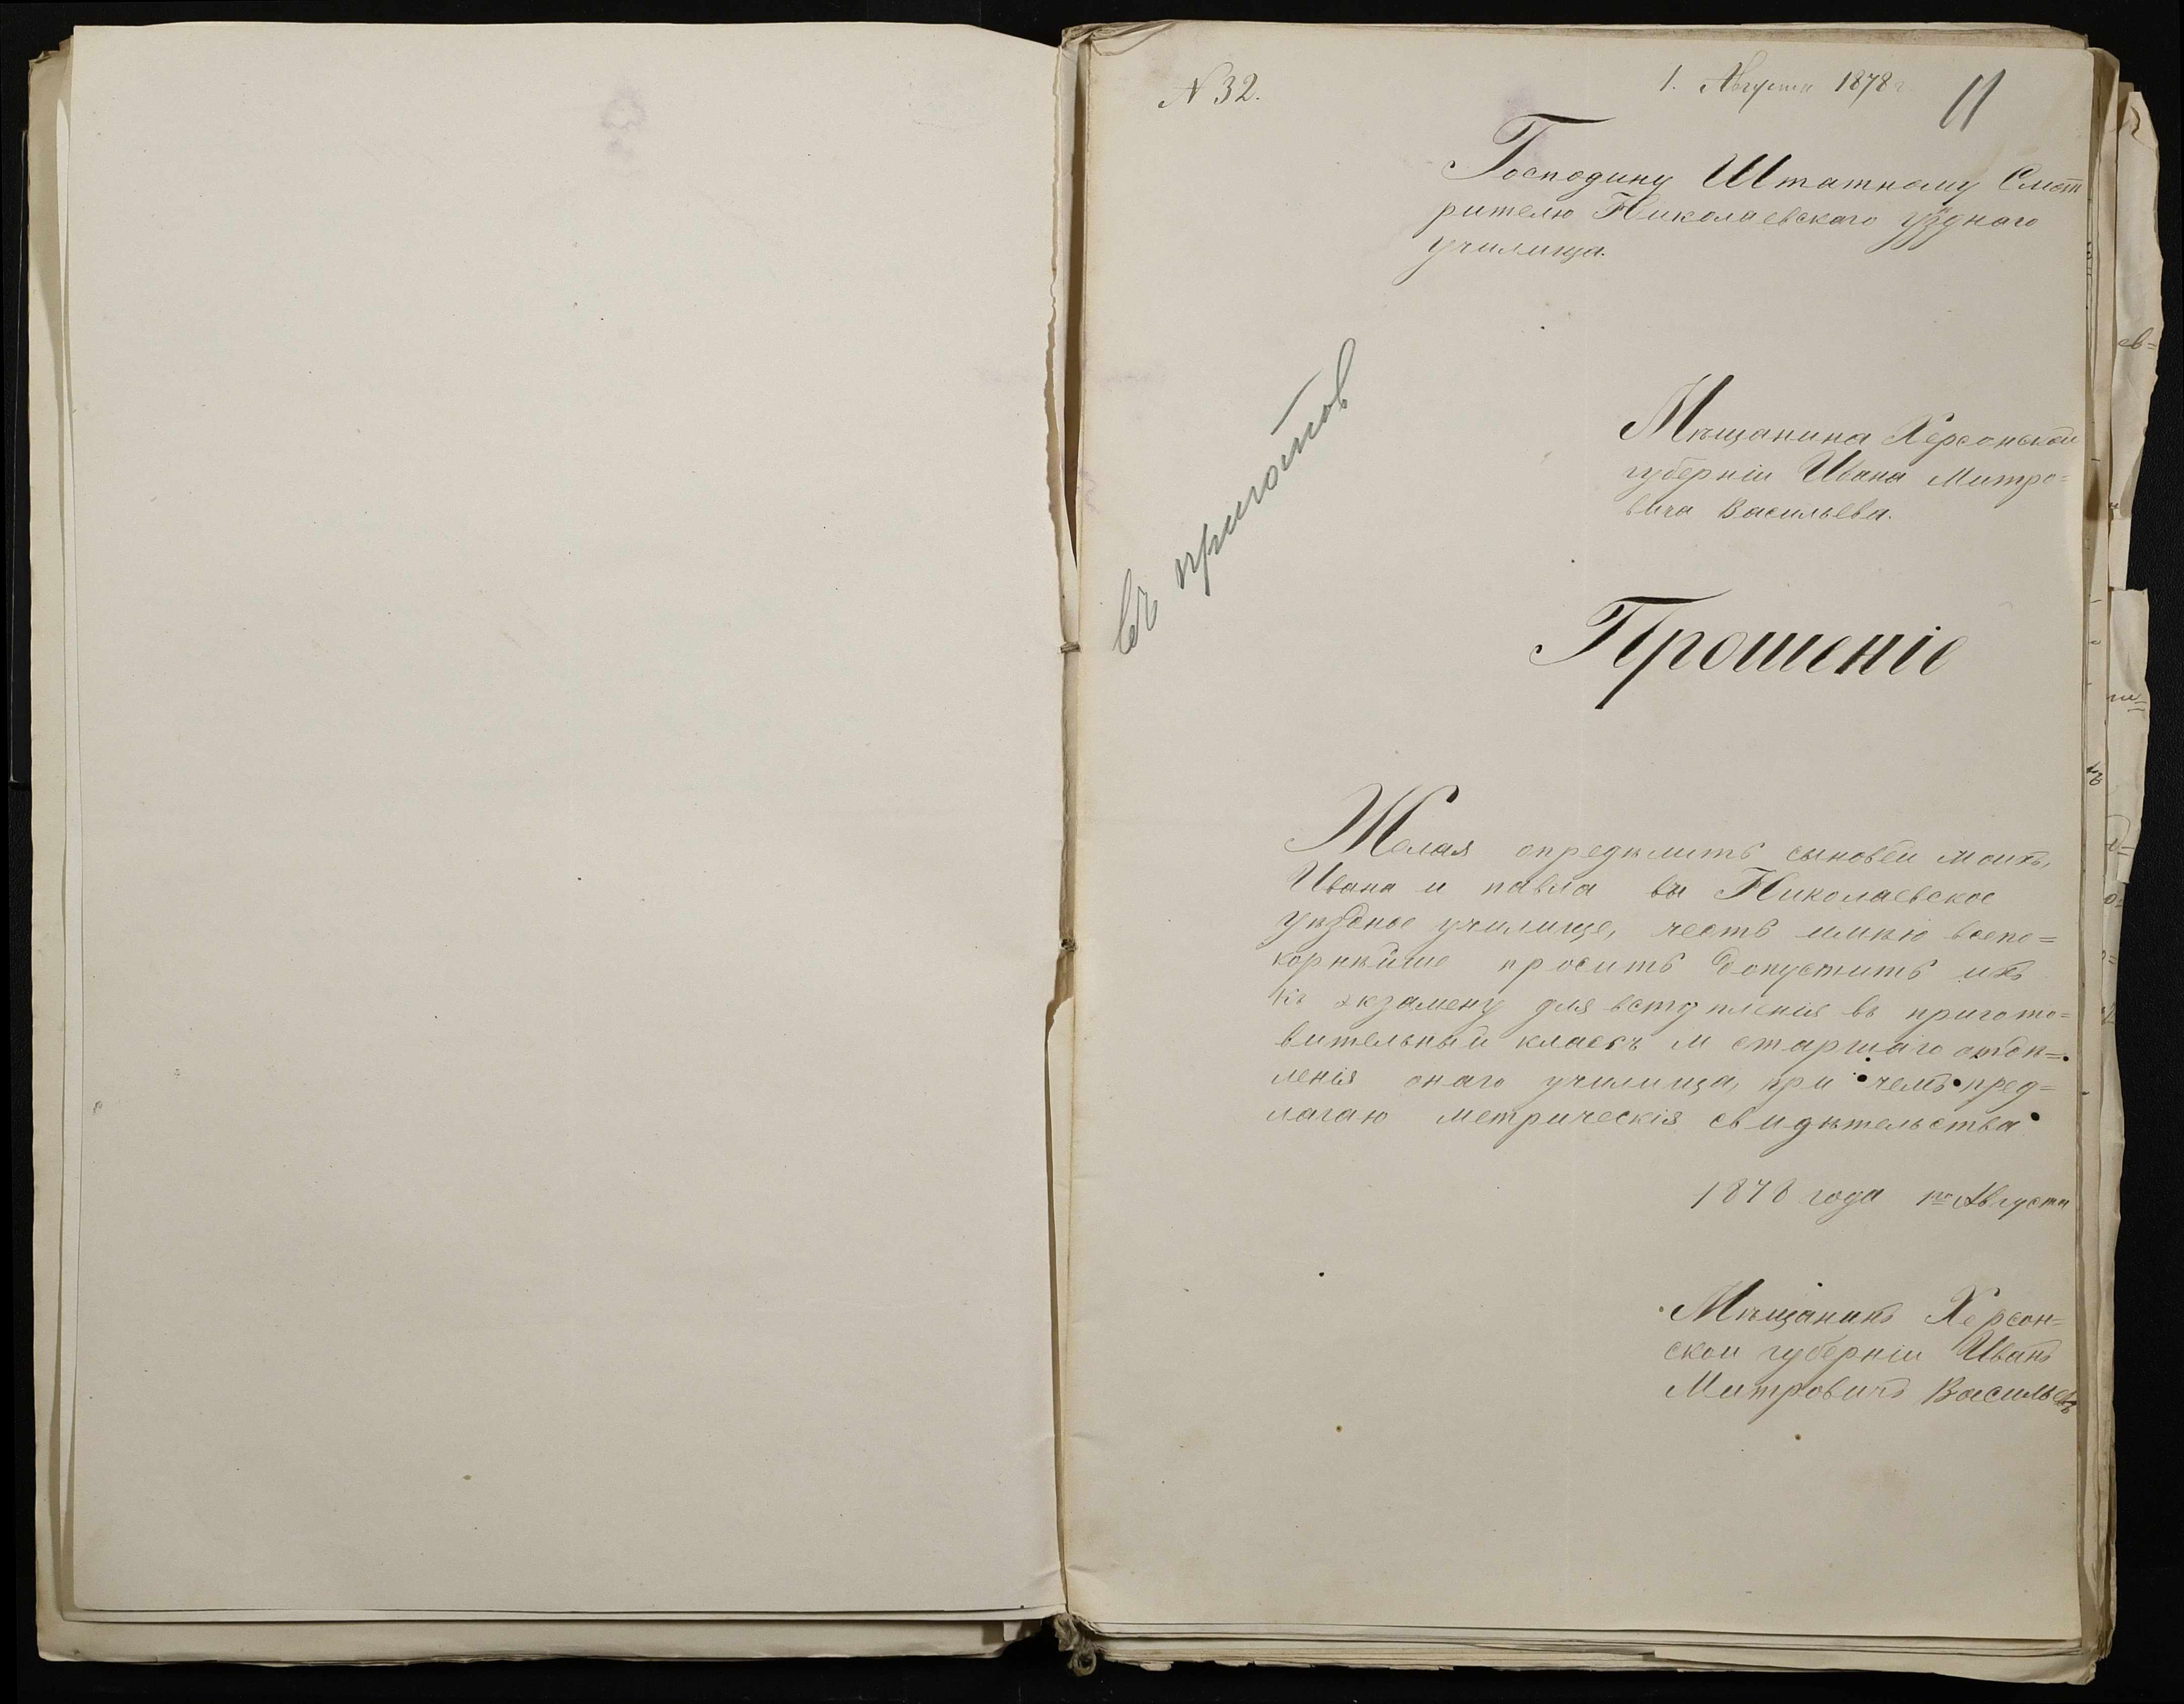 N 32.
1. Августа 1878 г
11
Господину Штатному Смот
рителю Николаевскаго уѣзднаго
училища.
въ приготов
Мѣщанина Херсонской
губерніи Ивана Митро=
вича Васильева.
Прошеніе
Желая опредѣлить сыновей моихъ,
Ивана и павла въ Николаевское
уѣздное училище, честь имѣю всепо=
корнѣйше просить допустить ихъ
къ экзамену для вступленія въ пригото=
вительный классъ и старшаго отдѣ=
ленія онаго училища, при чемъ пред=
лагаю метрическія свидѣтельства
1878 года 1го Августа
Мѣщанинъ Херсон=
ской губерніи Иванъ
Митровичъ Васильевъ